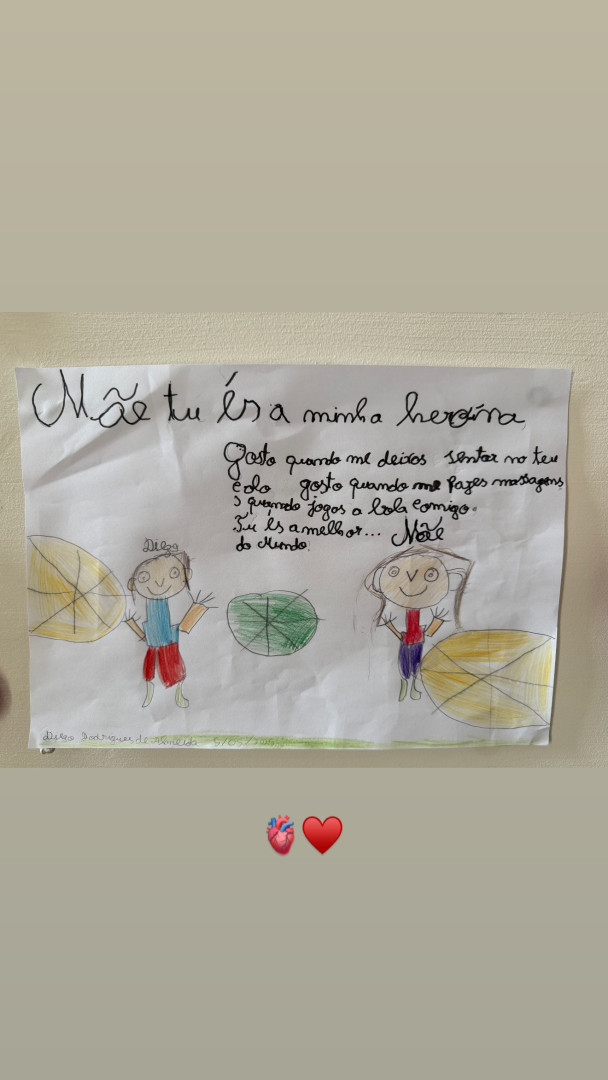 Mãe tu És a minha heroína
Gosto quando me deixas sentar no teu
colo gosto quando me fazes massagens
e quando jogas a bola comigo.
Tu És a melhor... Mãe
do Mundo!
Diego
Diego Rodrigues de Almeida 5/05/